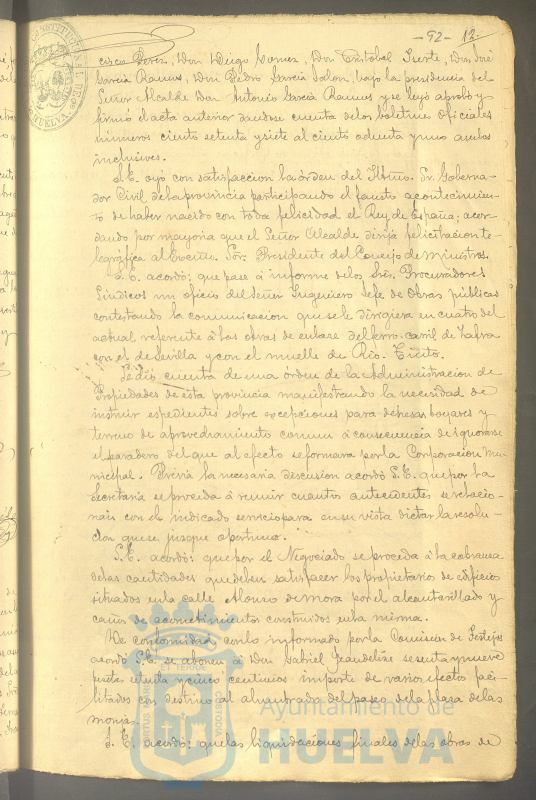 - 92 - 12.
cisco Perez, Don Diego Gomez, Don Cristobal Fuerte, Don José
Garcia Ramos, Don Pedro Garcia Jalon, bajo la presidencia del
Señor Alcalde Don Antonio Garcia Ramos y se leyó aprobó y
firmó el acta anterior dandose cuenta de los boletines oficiales
números ciento setenta y siete al ciento ochenta y uno ambos
inclusives.
S.E. oyó con satisfaccion la órden del Iltmo. Sr. Goberna-
dor Civil de la provincia participando el fausto acontecimien-
to de haber nacido con toda felicidad el Rey de España; acor-
dando por mayoria que el Señor Alcalde dirija felicitacion te-
legráfica al Excmo. Sor. Presidente del Consejo de ministros.
S.E. acordó; que pase á informe de los Sres. Procuradores
Síndicos un oficio del Señor Ingeniero Jefe de Obras públicas
contestando la comunicacion que se le dirigiera en cuatro del
actual referente á las obras de enlace del ferro-carril de Zafra
con el de Sevilla y con el muelle de Rio-Tinto.
Se dió cuenta de una órden de la Administracion de
Propiedades de esta provincia manifestando la necesidad de
instruir espedientes sobre escepciones para dehesas boyares y
terreno de aprovechamiento comun á consecuencia de ignorarse
el paradero del que al efecto se formara por la Corporacion Mu-
nicipal. Prévia la necesaria discusion acordó S.E. que por la
Secretaria se proceda á reunir cuantos antecedentes se relacio-
nan con el indicado servicio para en su vista dictar la resolu-
cion que se juzgue oportuno.
S.E. acordó: que por el Negociado se proceda á la cobranza
de las cantidades que deben satisfacer los propietarios de edificios
situados en la calle Alonso de mora por el alcantarillado y
caños de acometimientos construidos en la misma.
De conformidad con lo informado por la Comision de Festejos
acordó S.E. se abonen á Don Gabriel Jeandelize sesenta y nueve
pesetas setenta y cinco centimos importe de varios efectos faci-
litados con destino al alumbrado del paseo de la plaza de las
monjas.
S.E. acordó: que las liquidaciones finales de las obras de
Ayuntamiento de
HUELVA